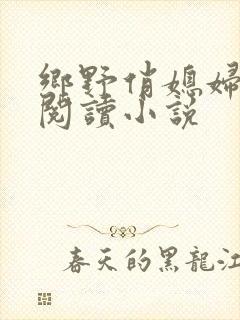 鄉野俏媳婦
閱讀小説
春天的黑龍江